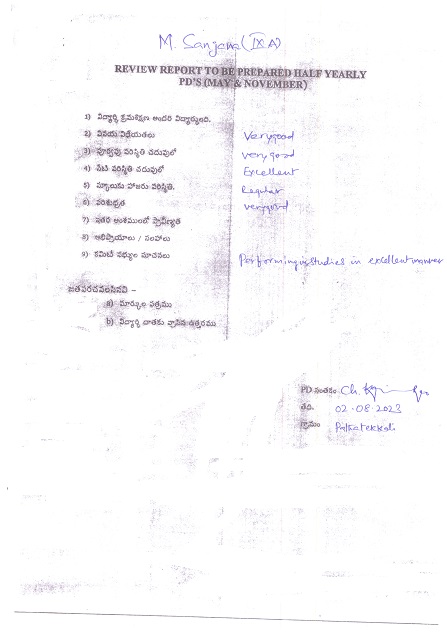 M. Sanjana (IX A)
REVIEW REPORT TO BE PREPARED HALF YEARLY
PD'S (MAY & NOVEMBER)
1) విద్యార్థి క్రమశిక్షణ అందరి విద్యార్థులది.
2) వినయ విధేయతలు Verygood
3) పూర్వపు పరిస్థితి చదువులో verygood
4) నేటి పరిస్థితి చదువులో Excellent
5) స్కూలుకు హాజరు పరిస్థితి. Regular
6) పరిశుభ్రత verygood
7) ఇతర అంశములలో ప్రావీణ్యత
8) అభిప్రాయాలు / సలహాలు
9) కమిటీ సభ్యుల సూచనలు Performing in studies in excellent manner
జతపరచవలసినవి –
a) మార్కుల పత్రము
b) విద్యార్థి దాతకు వ్రాసిన ఉత్తరము
PD సంతకం Ch.
తేది. 02-08-2023
గ్రామం